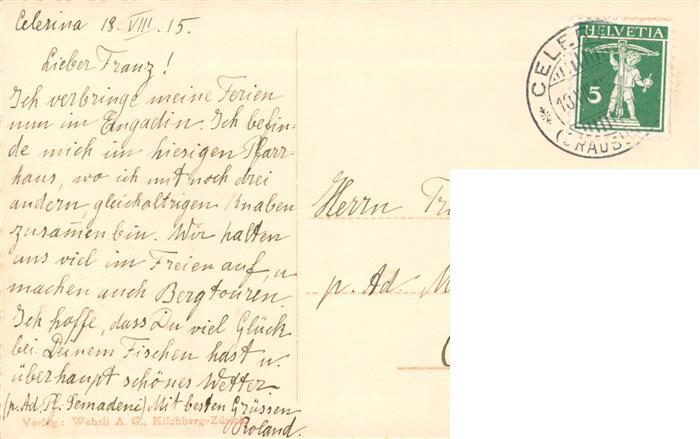 Celerina 18. VIII. 15.
Lieber Franz!
Ich verbringe meine Ferien
nun im Engadin. Ich befin-
de mich im hiesigen Pfarr-
haus, wo ich mit noch drei
andern gleichaltrigen Knaben
zusammen bin. Wir halten
uns viel im Freien auf, u
machen auch Bergtouren.
Ich hoffe, dass Du viel Glück
bei Deinem Fischen hast u.
überhaupt schönes Wetter.
(p. Ad. Pf. Semadeni) Mit besten Grüssen
Roland.
Verlag: Wehrli A. G., Kilchberg-Zürich
HELVETIA
5
CELE
(GRAUB
Herrn
p. Ad.